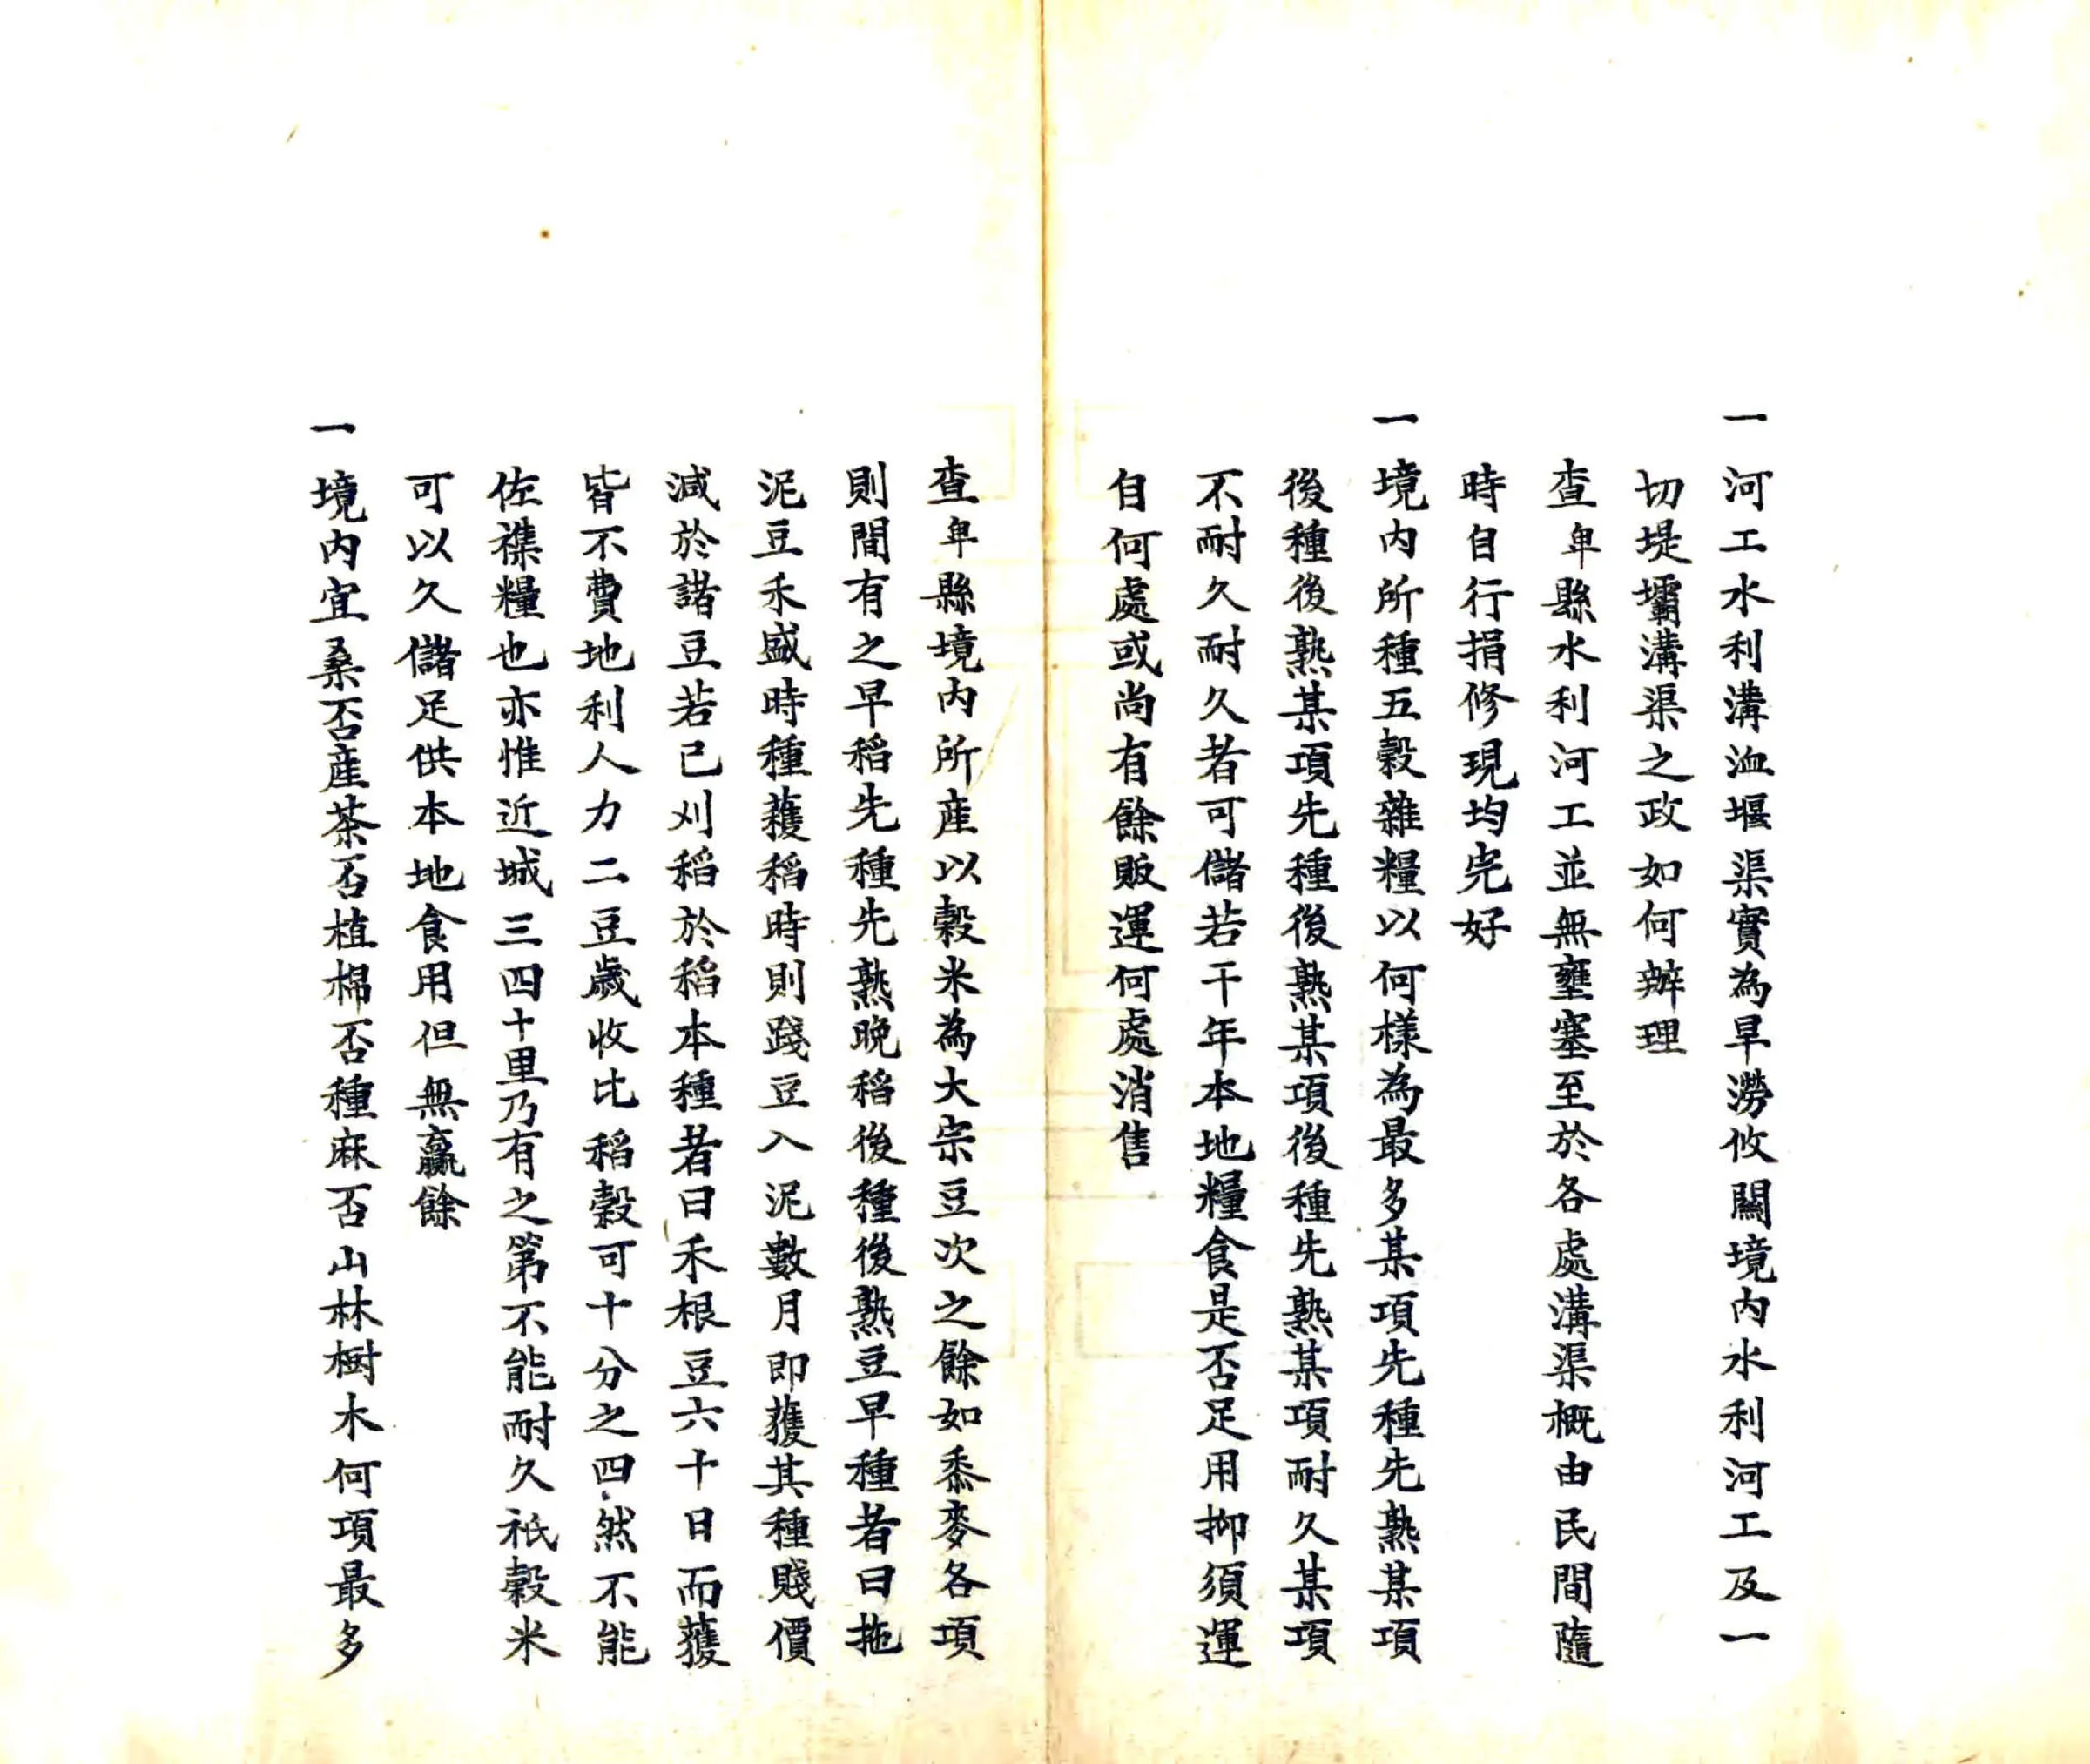 一河工水利溝洫堰渠實為旱澇攸關境内水利河工及一
切堤壩溝渠之政如何辦理
查卑縣水利河工並無壅塞至於各處溝渠概由民間隨
時自行捐修現均完好
一境内所種五穀雜糧以何樣為最多某項先種先熟某項
後種後熟某項先種後熟某項後種先熟某項耐久某項
不耐久耐久者可儲若干年本地糧食是否足用抑須運
自何處或尚有餘販運何處消售
查卑縣境内所產以穀米為大宗豆次之餘如黍麥各項
則間有之早稻先種先熟晚稻後種後熟豆早種者曰拖
泥豆禾盛時種蘿稻時則踐豆入泥數月即獲其種賤價
減於諸豆若已刈稻於稻本種者曰禾根豆六十日而獲
皆不費地利人力二豆歲收比稻穀可十分之四然不能
佐襍糧也亦惟近城三四十里乃有之第不能耐久祇穀米
可以久儲足供本地食用但無贏餘
一境内宜桑否產茶否植棉否種麻否山林樹木何項最多